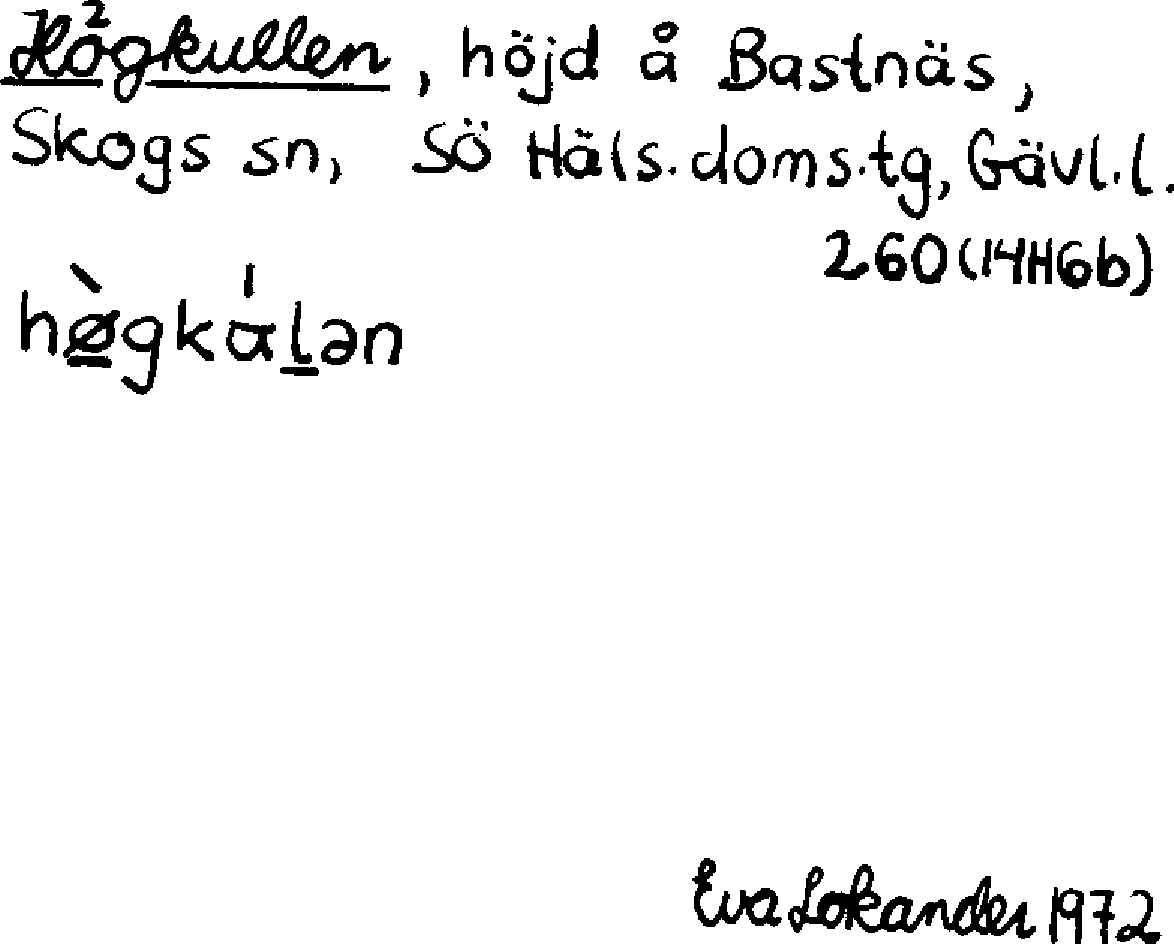 Högkullen, höjd å Bastnäs,
Skogs sn, SÖ Häls. doms.tg, Gävl.l.
260 (14H6b)
hø̀gkɑ́lən
Eva Lokander 1972